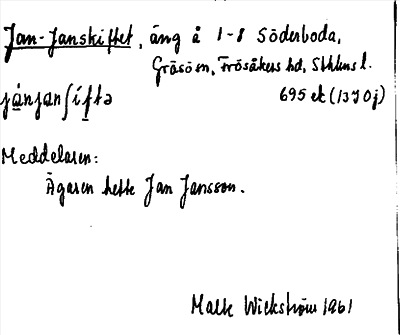 Jan-Janskiftet, äng å 1-8 Söderboda,
Gräsö sn, Frösåkers hd, Sthlms l.
jànjanʃiftə 695 ek (13J 0j)
Meddelaren:
Ägaren hette Jan Jansson.
Wickström 1961